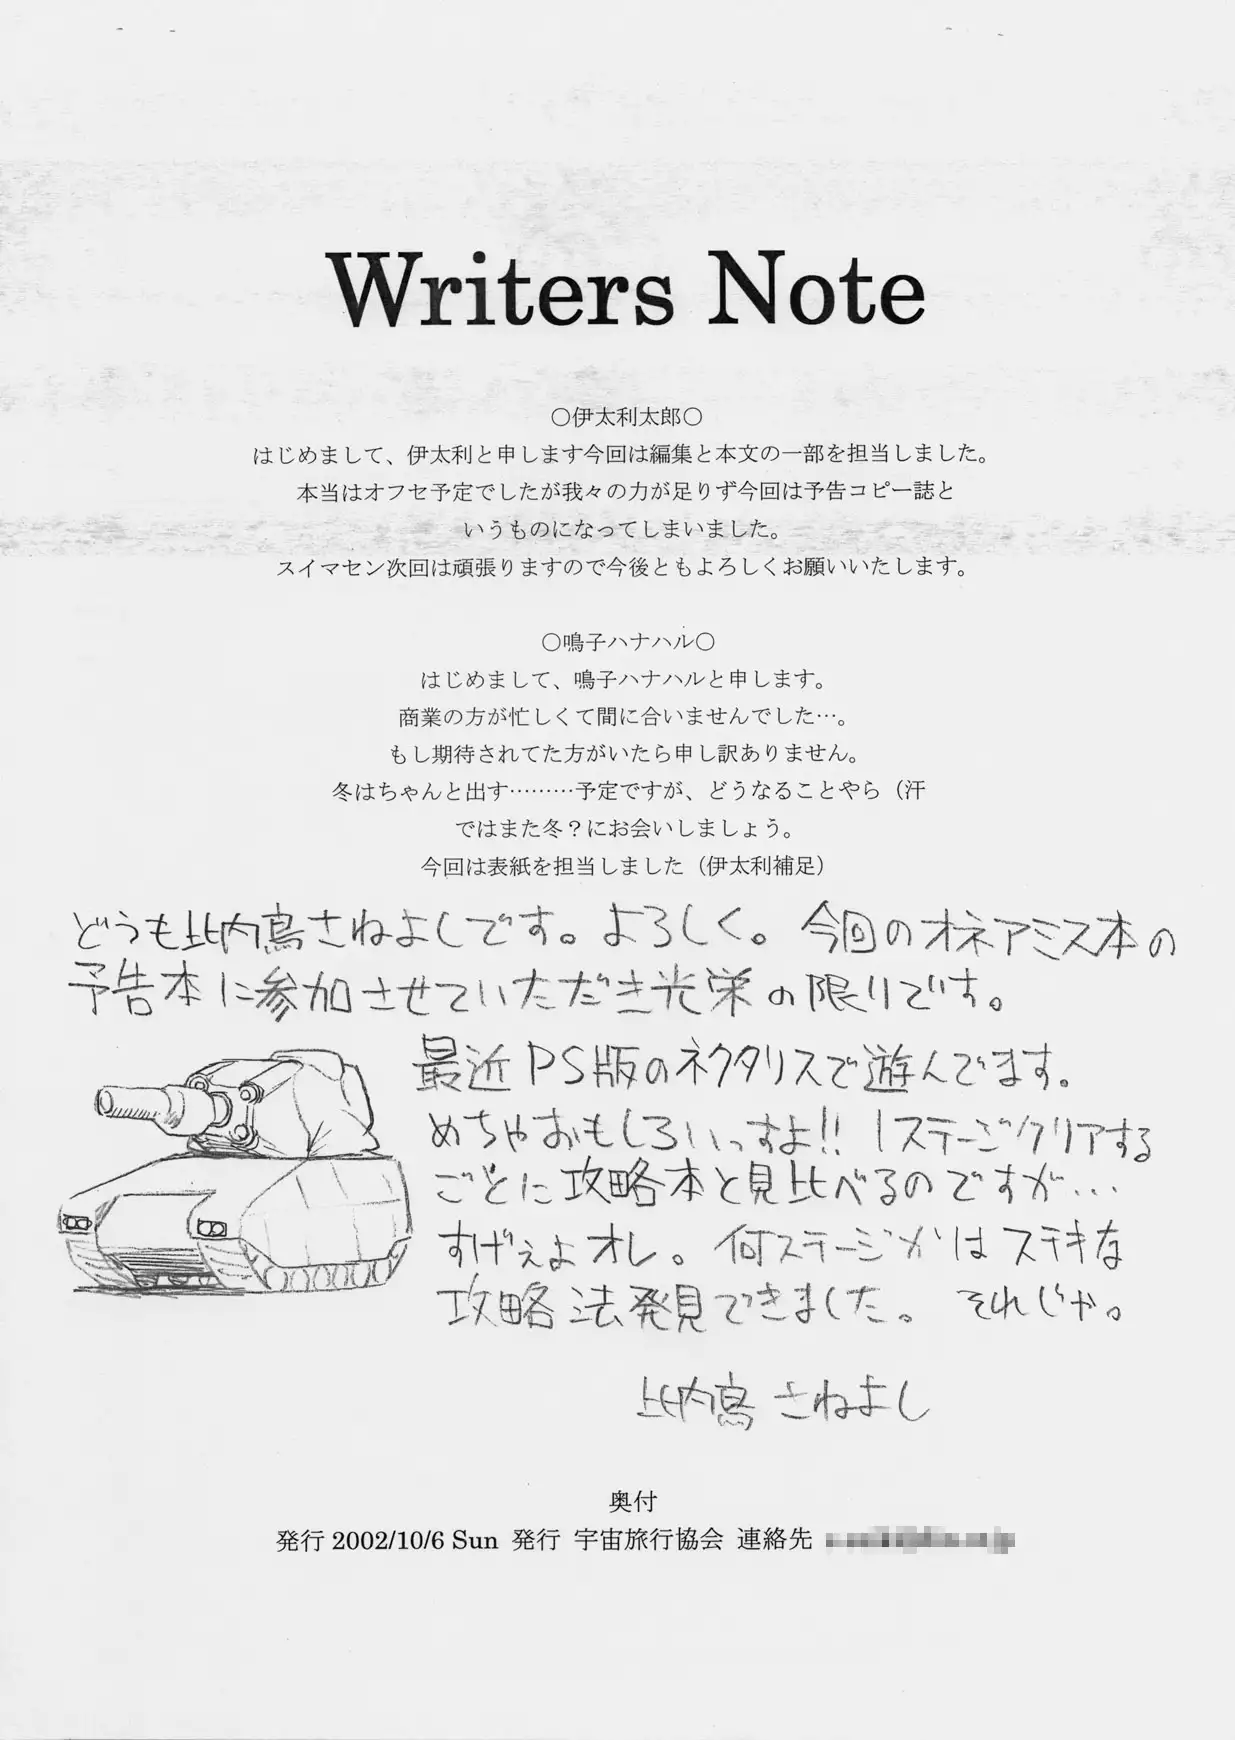 Writers Note
〇伊太利太郎〇
はじめまして、伊太利と申します今回は編集と本文の一部を担当しました。
本当はオフセ予定でしたが我々の力が足りず今回は予告コピー誌と
いうものになってしまいました。
スイマセン次回は頑張りますので今後ともよろしくお願いいたします。
〇鳴子ハナハル〇
はじめまして、鳴子ハナハルと申します。
商業の方が忙しくて間に合いませんでした…。
もし期待されてた方がいたら申し訳ありません。
冬はちゃんと出す………予定ですが、どうなることやら（汗
ではまた冬？にお会いしましょう。
今回は表紙を担当しました（伊太利補足）
どうも比内鳥さねよしです。よろしく。今回のオネアミス本の
予告本に参加させていただき光栄の限りです。
最近PS版のネクタリスで遊んでます。
めちゃおもしろいっすよ!! 1ステージクリアする
ごとに攻略本と見比べるのですが…
すげぇよオレ。何ステージかはステキな
攻略法発見できました。それじゃ。
比内鳥さねよし
奥付
発行 2002/10/6 Sun 発行 宇宙旅行協会 連絡先